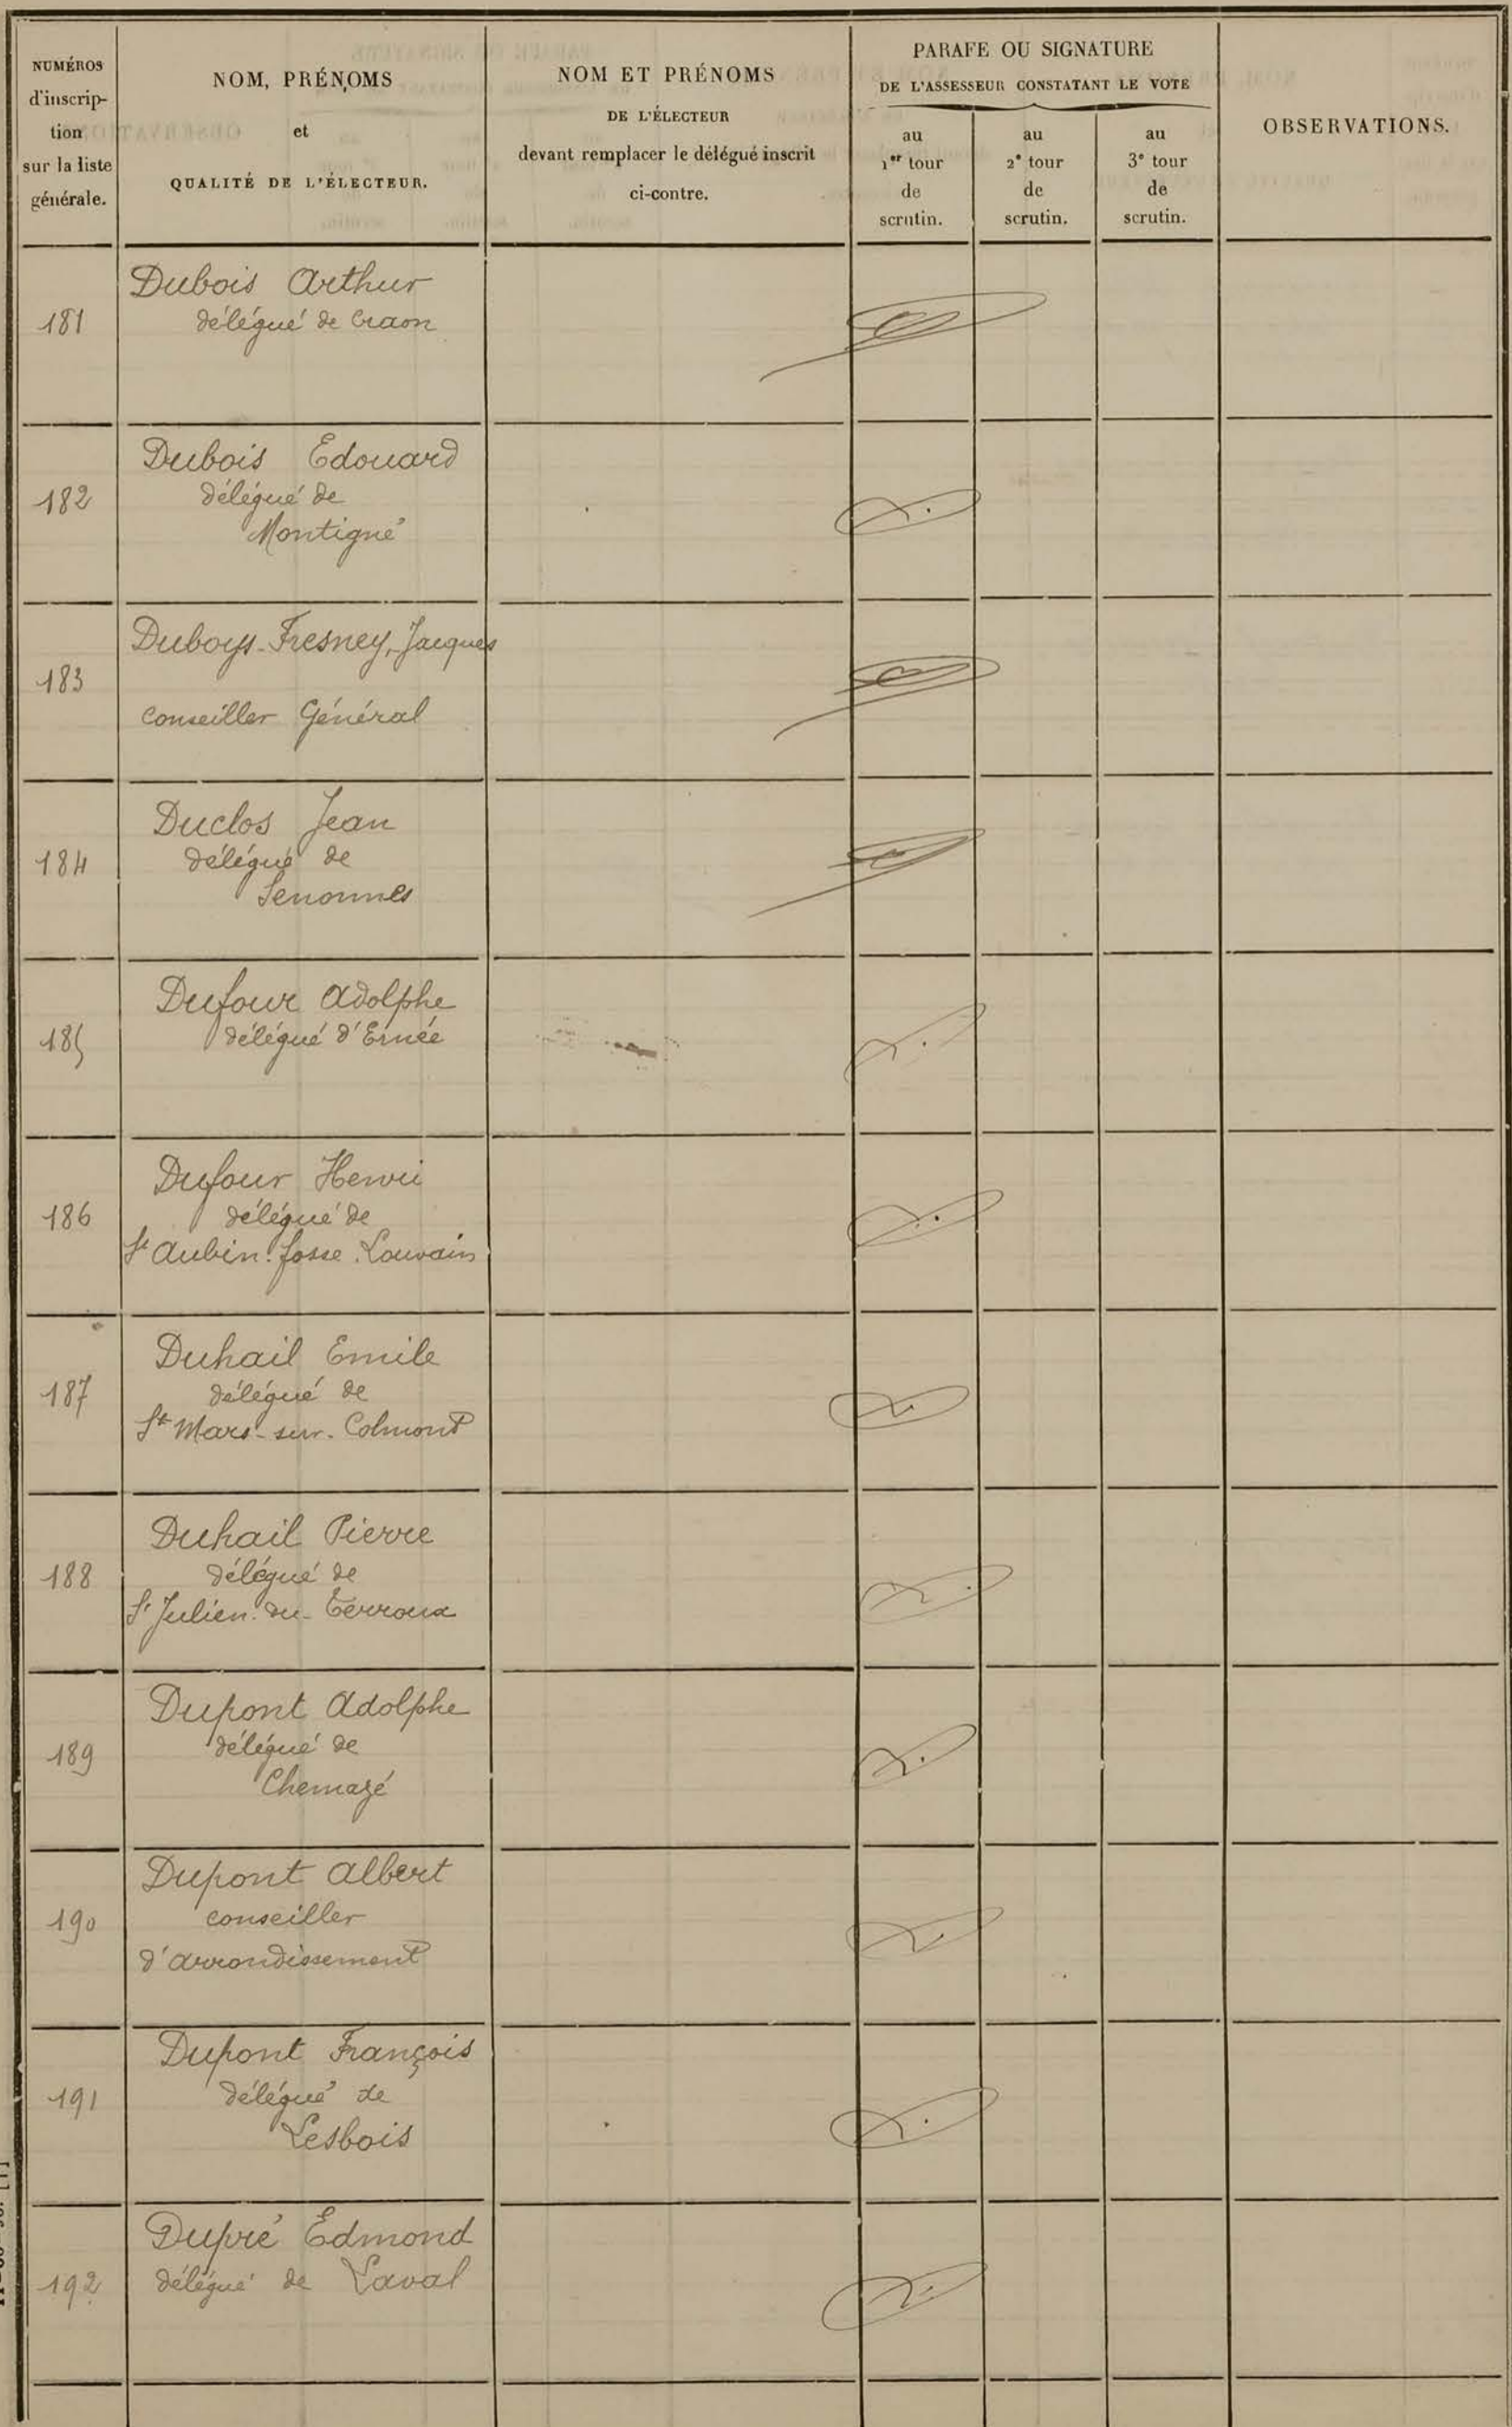 NUMÉROS
d'inscrip-
tion
sur la liste
générale.
NOM, PRÉNOMS
et
QUALITÉ DE L'ÉLECTEUR.
NOM ET PRÉNOMS
DE L'ÉLECTEUR
devant remplacer le délégué inscrit
ci-contre.
PARAFE OU SIGNATURE
DE L'ASSESSEUR CONSTATANT LE VOTE
au
1er tour
de
scrutin.
au
2e tour
de
scrutin.
au
3e tour
de
scrutin.
OBSERVATIONS.
181
Dubois Arthur
délégué de Craon
182
Dubois Edouard
délégué de
Montigné
183
Duboys-Fresney, Jacques
Conseiller Général
184
Duclos Jean
délégué de
Senonnes
185
Dufour Adolphe
délégué d'Ernée
186
Dufour Henri
délégué de
St Aubin-fosse-Louvain
187
Duhail Emile
délégué de
St Mars-sur-Colmont
188
Duhail Pierre
délégué de
St Julien-du-Terroux
189
Dupont Adolphe
délégué de
Chemazé
190
Dupont Albert
conseiller
d'arrondissement
191
Dupont François
délégué de
Lesbois
192
Dupré Edmond
délégué de Laval